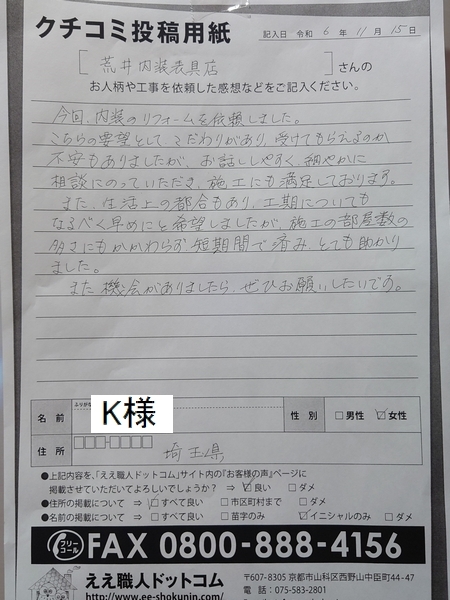 クチコミ投稿用紙
記入日 令和 6 年 11 月 15 日
[ 荒井内装表具店 ] さんの
お人柄や工事を依頼した感想などをご記入ください。
今回、内装のリフォームを依頼しました。
こちらの要望として こだわりがあり、受けてもらえるのか
不安もありましたが、お話ししやすく、細やかに
相談にのっていただき、施工にも満足しております。
また、生活上の都合もあり、工期についても
なるべく早めにと希望しましたが、施工の部屋数の
多さにもかかわらず 短期間で済み、とても助かり
ました。
また 機会がありましたら、ぜひお願いしたいです。
ふりがな
名 前 K様 性 別 □男性 ☑女性
住 所 埼玉県
●上記内容を、「ええ職人ドットコム」サイト内の『お客様の声』ページに
掲載させていただいてよろしいでしょうか? ⇒ ☑良い □ダメ
●住所の掲載について ⇒ □すべて良い □市区町村まで □ダメ
●名前の掲載について ⇒ □すべて良い □苗字のみ ☑イニシャルのみ □ダメ
フリーコール FAX 0800-888-4156
ええ職人ドットコム
http://www.ee-shokunin.com/
〒607-8305 京都市山科区西野山中臣町44-47
電 話:075-583-2801